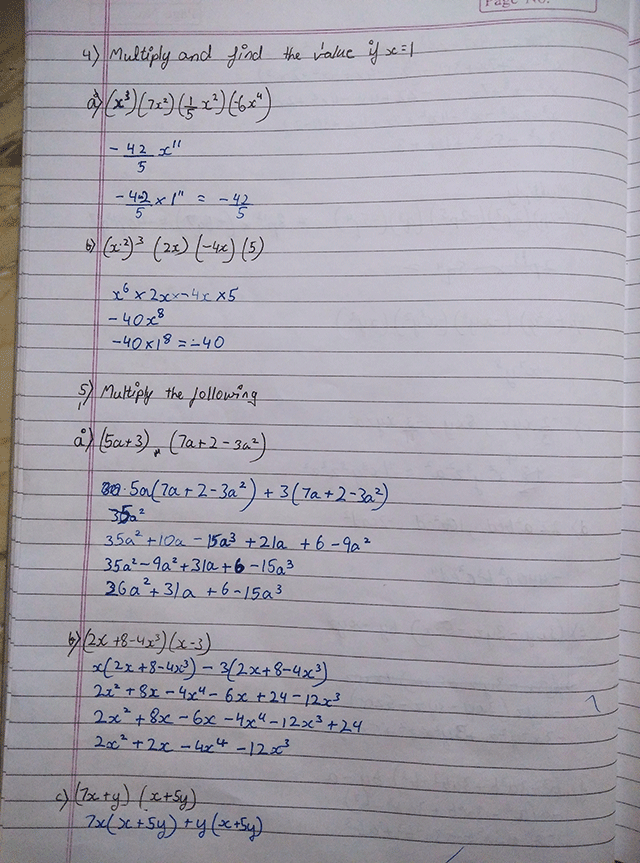 Page No.
4) Multiply and find the value if x=1
a) (x³)(7x²)(1/5 x²)(-6x⁴)
-42/5 x¹¹
-42/5 × 1¹¹ = -42/5
b) (x²)³ (2x) (-4x) (5)
x⁶ × 2x × -4x × 5
-40x⁸
-40 × 1⁸ = -40
5) Multiply the following
a) (5a+3) × (7a+2-3a²)
5a(7a+2-3a²) + 3(7a+2-3a²)
35a²
35a² + 10a - 15a³ + 21a + 6 - 9a²
35a² - 9a² + 31a + 6 - 15a³
36a² + 31a + 6 - 15a³
b) (2x+8-4x³)(x-3)
x(2x+8-4x³) - 3(2x+8-4x³)
2x² + 8x - 4x⁴ - 6x + 24 - 12x³
2x² + 8x - 6x - 4x⁴ - 12x³ + 24
2x² + 2x - 4x⁴ - 12x³
c) (7x+y) (x+5y)
7x(x+5y) + y(x+5y)